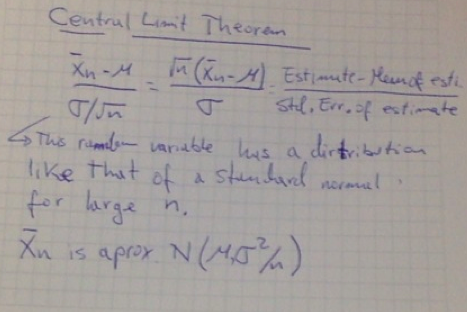 Central Limit Theorem
X̄n - μ / σ/√n = √n (X̄n - μ) / σ = Estimate - Mean of esti. / Std. Err. of estimate
↳ This random variable has a distribution
like that of a standard normal.
for large n.
X̄n is aprox. N(μ, σ²/n)